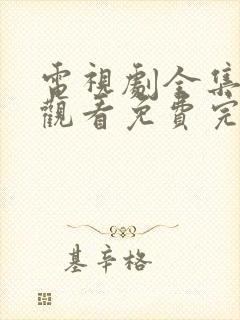 電視劇全集
觀看免費完
基辛格